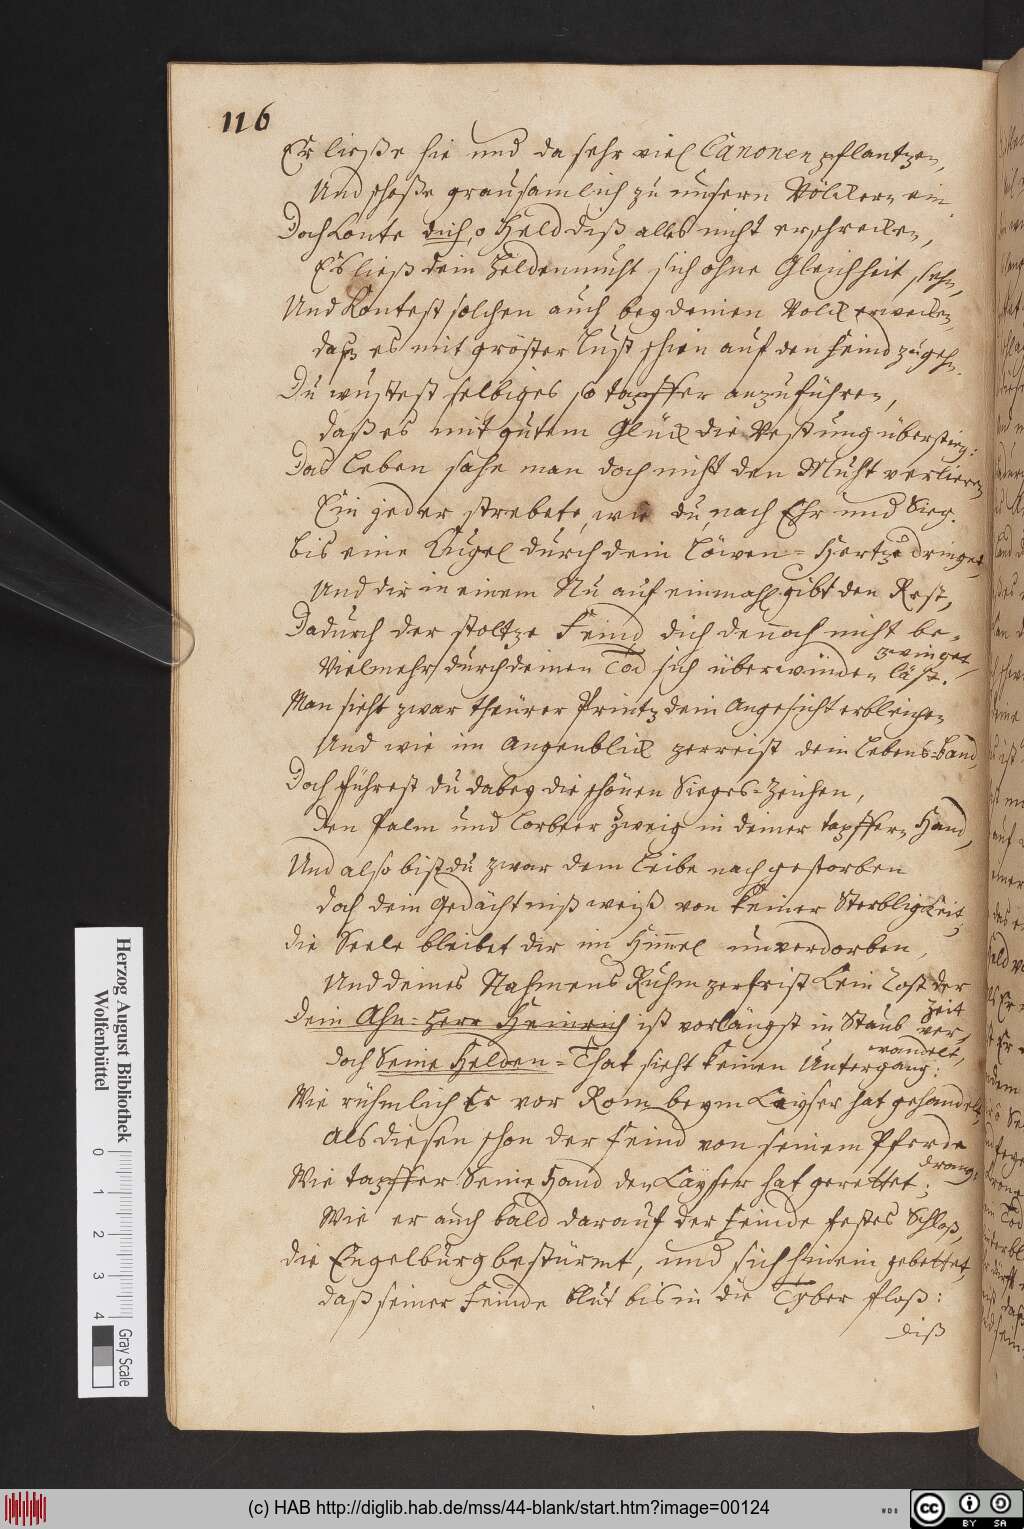 116
Er ließe hie und da sehr viel Canonen pflantzen,
Und schoße grausamlich zu unsern Völckern ein.
Doch konte dich, o Held diß alles nicht erschrecken,
Es ließ dein Heldenmuht sich ohne Gleichheit sehn,
Und kontest solchen auch bey deinen Volck erwecken,
daß es mit gröster Lust schien auf den Feind zugehn.
Du wustest selbiges so tapffer anzuführen,
daß es mit gutem Glück die Vestung überstieg:
Das Leben sahe man doch nicht den Muht verlieren
Ein jeder strebete, wie du, nach Ehr und Sieg.
bis eine Kugel durch dein Löwen-Hertze dringet,
Und dir in einem Nu auf einmahl gibt den Rest,
Dadurch der stoltze Feind dich dennoch nicht be-
zwinget,
Vielmehr durch deinen Tod sich überwinden läst.
Man sieht zwar theurer Printz dein Angesicht erbleichen
Und wie im Augenblick zerreist dein Lebens-Band,
Doch führest du dabey die schönen Sieges-Zeichen,
den Palm und Lorbeer Zweig in deiner tapffern Hand,
Und also bist du zwar dem Leibe nach gestorben
doch dein Gedächtniß weiß von keiner Sterbligkeit,
die Seele bleibet dir im Himmel unverdorben,
Und deines Nahmens Ruhm zerfrist kein Rost der
Zeit
Dein Ahn-Herr Heinrich ist vorlängst in Staub ver-
wandelt,
doch Seine Helden-That sieht keinen Untergang:
Wie rühmlich Er vor Rom beym Kayser hat gehandelt,
Als diesen schon der Feind von seinem Pferde
drang:
Wie tapffer Seine Hand den Kayser hat gerettet;
Wie er auch bald darauf der Feinde festes Schloß,
die Engelburg bestürmt, und sich hinein gebettet,
daß seiner Feinde blut bis in die Tyber floß:
diß
Herzog August Bibliothek
Wolfenbüttel
0 1 2 3 4
Gray Scale
(c) HAB http://diglib.hab.de/mss/44-blank/start.htm?image=00124
WDB
cc BY SA